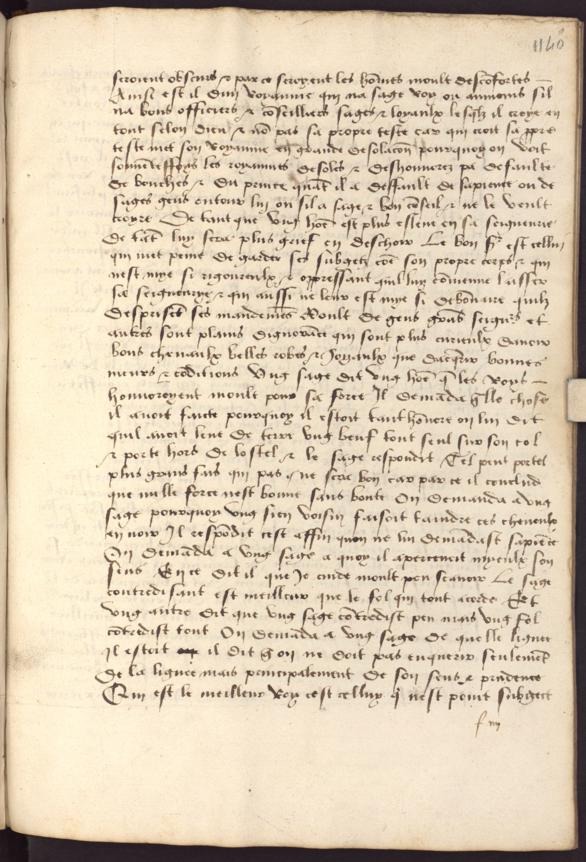 1140
seroient obscurs & par ce seroyent les hom̄es moult desconfortes
Ainsi est il dun royaume qui na sage roy ou aumoins sil
na bons officiers & cōseilliers sages & loyaulx lesqlz il croye en
tout selon dieu & nō pas sa propre teste car qui croit sa ppre
teste met son royaume en grande desolacōn pourquoy on voit
souuenteffoys les royaumes desoles & deshonnorez pa deffaulte
de bouches & du prince quāt il a deffault de sapience ou de
sages gens entour luy ou sil a sage & bon cōseil & ne le veult
croyre De tant que vng hōe est plus esleue en sa seigneurie
de tāt luy sera plus grief en descheoir Le bon sr est celluy
qui met peine de garder ses subgetz cōe son propre corps & qui
nest mye si rigoureulx & oppressant quil luy conuienne laisser
sa seigneurye & qui aussi ne leur est mye si debonaire quilz
desprisēt ses mandemēs Moult de gens grās seigrs et
autres sont plains dignorāce qui sont plus curieulx dauoir
bons cheuaulx belles robes & Joyaulx que dacquerir bonnes
meurs & cōditions Vng sage dit vng hōe q̄ les roys
honnoroyent moult pour sa force Il demāda q̄lle chose
il auoit faicte pourquoy il estoit tant hōnore on luy dit
quil auoit leue de terre vng beuf tout seul sur son col
& porte hors de lostel & le sage respondit Tel peut porter
plus grans fais qui pas ne sera bon car par ce il conclud
que nulle force nest bonne sans bonte On demanda a vng
sage pourquoy vng sien voisin faisoit taindre ces cheueulx
en noir Il respōdit cest affin quon ne luy demādast sapiēce
On demāda a vng sage a quoy il aperceuoit myeulx son
sens En ce dit il que Je cuide moult peu scauoir Le sage
contredisant est meilleur que le fol qui tout acorde Et
vng autre dit que vng sage cōtredist peu mais vng fol
cōtredist tout On demāda a vng sage de quelle lignee
Il estoit il dit q̄ on ne doit pas enquerir seulemēt
de la lignee mais principalement de son sens & prudence
Qui est le meilleur roy cest celluy q̄ nest point subgect